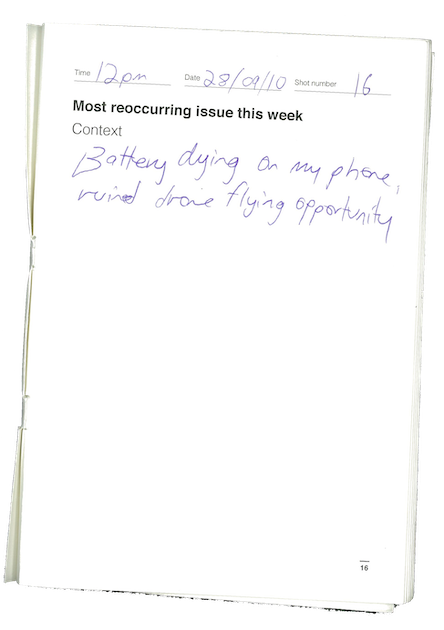 Time 12pm Date 28/09/10 Shot number 16
Most reoccurring issue this week
Context
Battery dying on my phone,
ruined drone flying opportunity
16